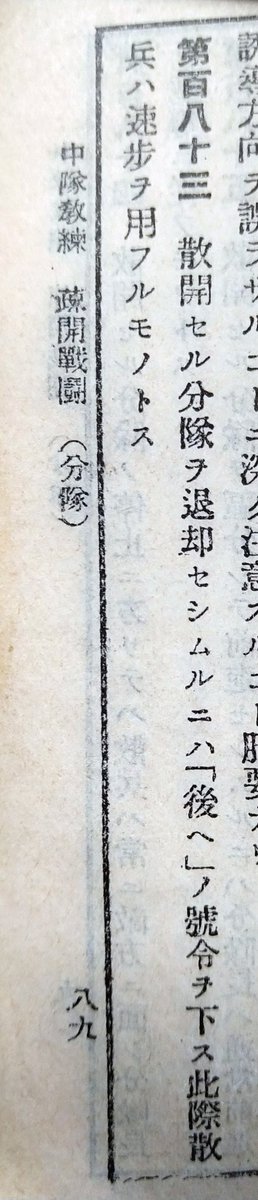 誘導方向ヲ誤ラザルコトニ深ク注意スルコト肝要ナリ
第百八十三 散開セル分隊ヲ退却セシムルニハ「後ヘ」ノ號令ヲ下ス此際散
兵ハ速步ヲ用フルモノトス
中隊敎練 疎開戰鬪 (分隊) 八九